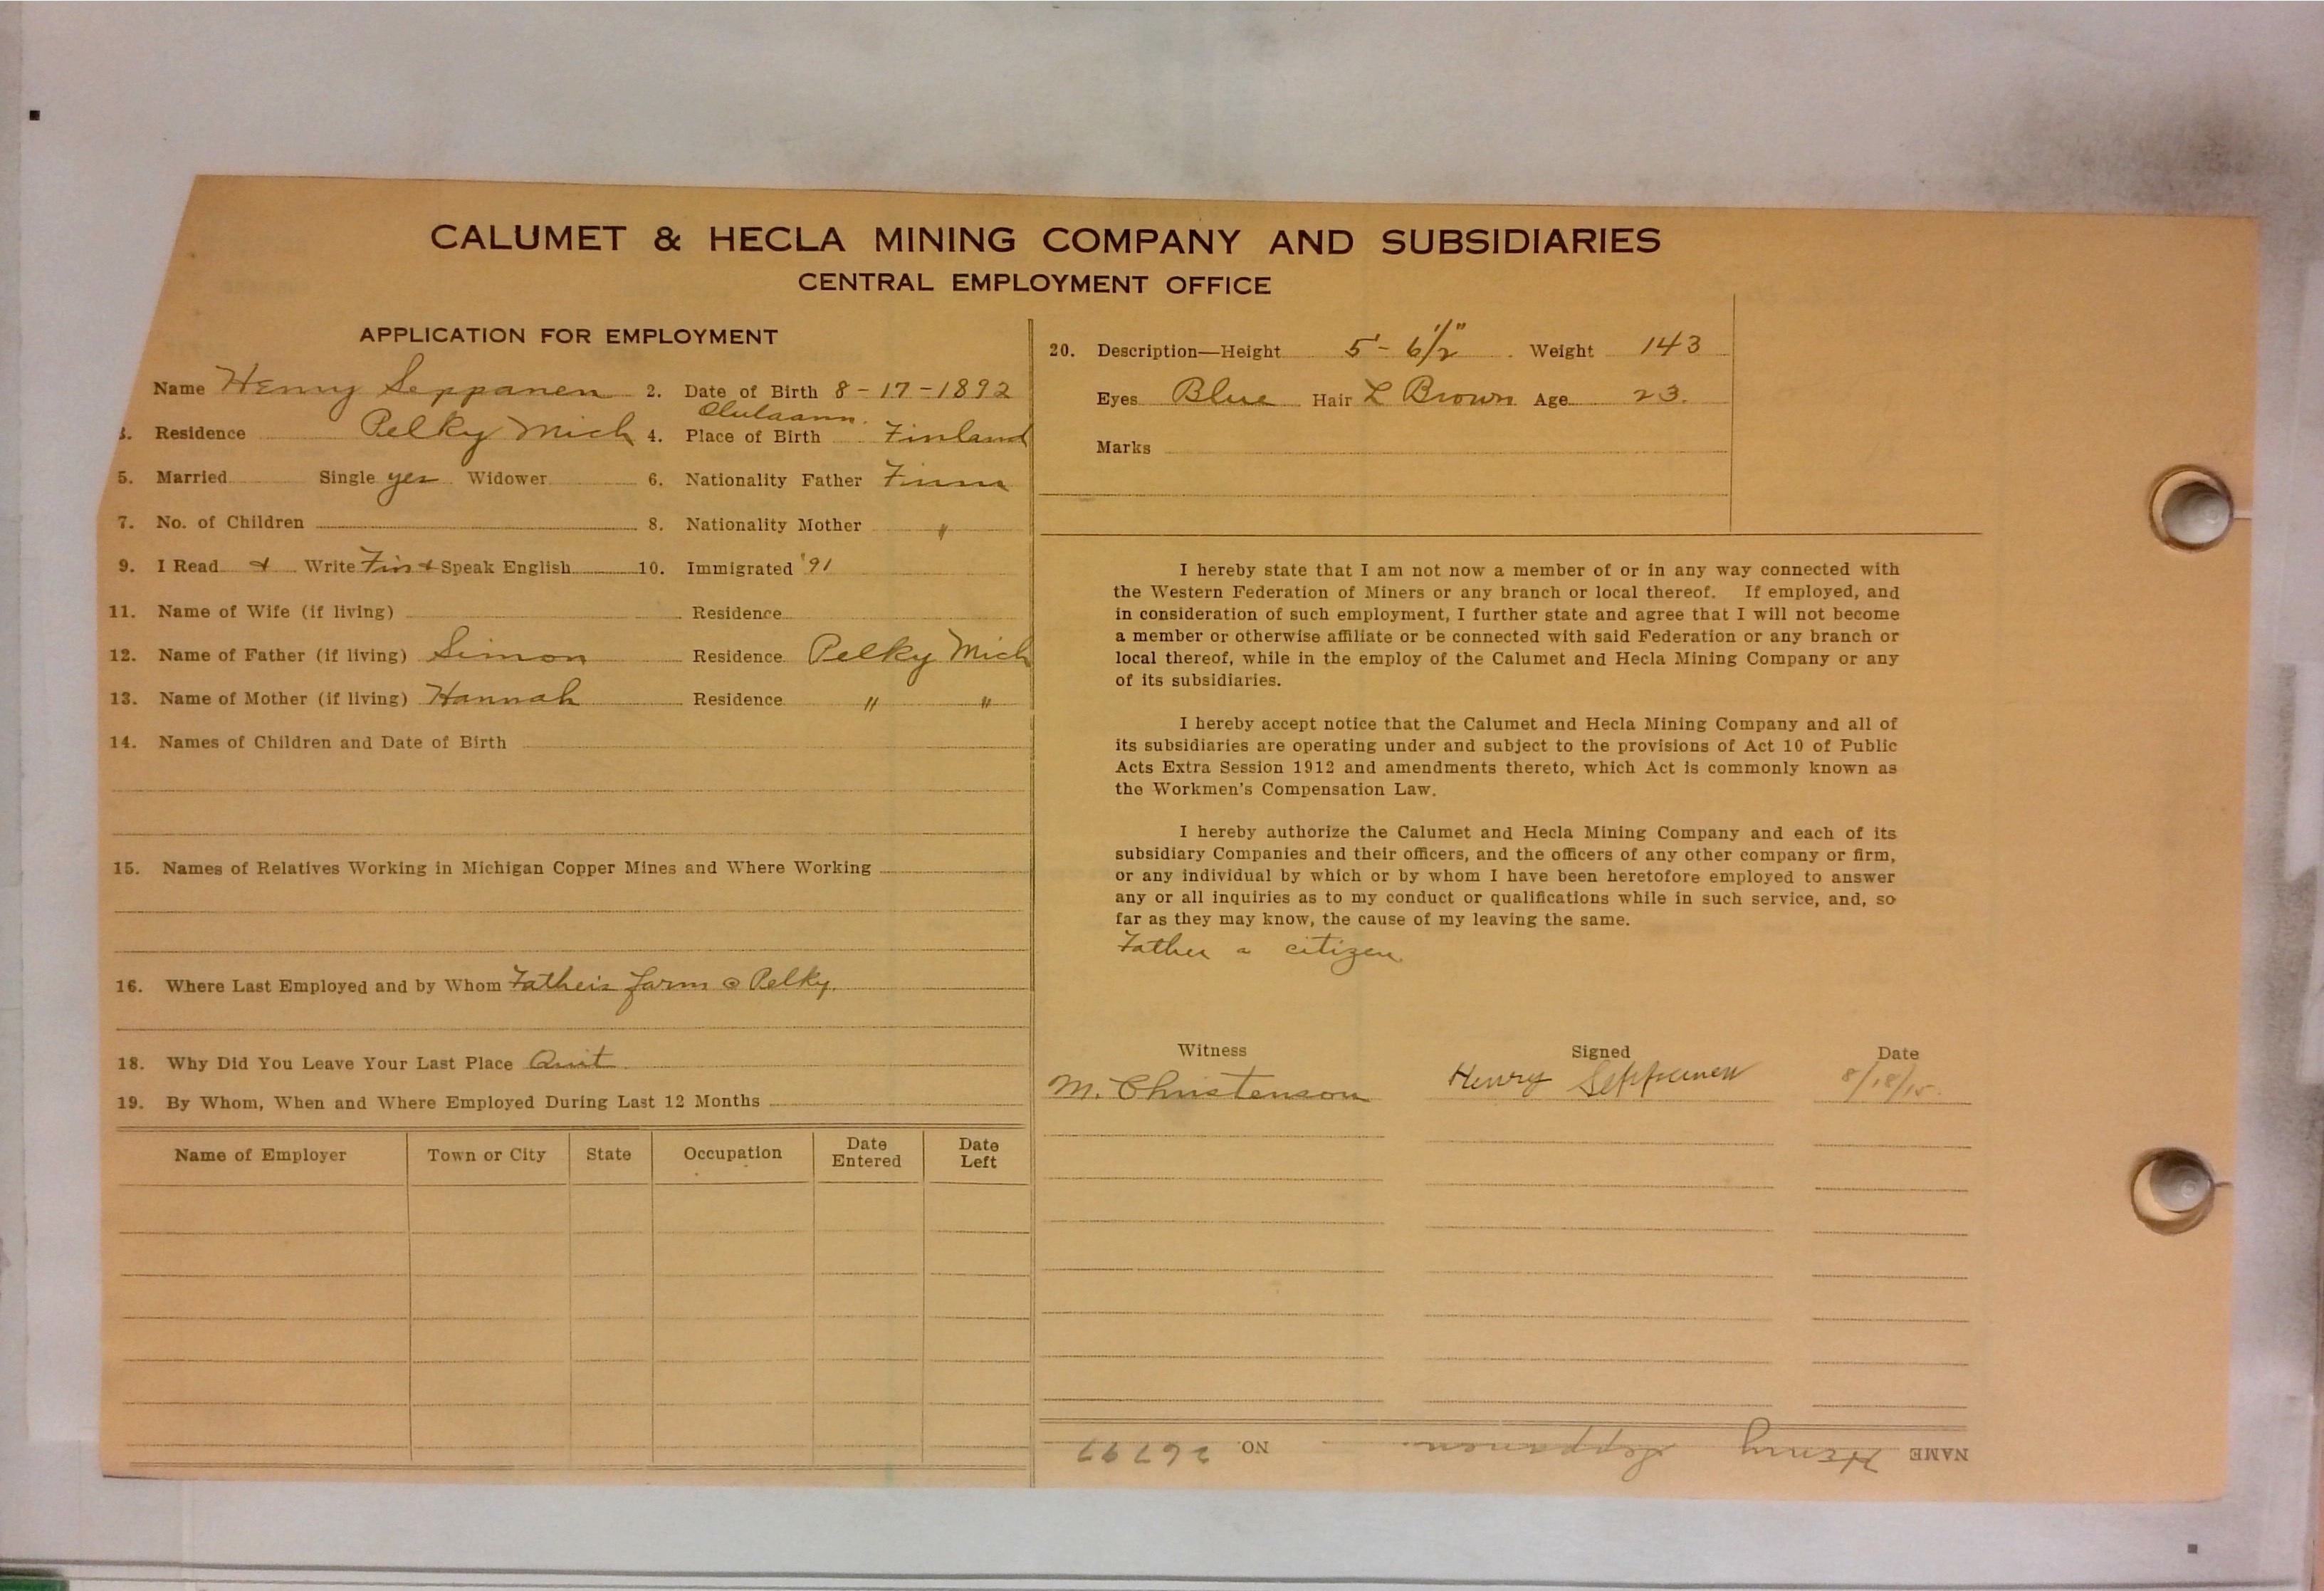 CALUMET & HECLA MINING COMPANY AND SUBSIDIARIES
CENTRAL EMPLOYMENT OFFICE
APPLICATION FOR EMPLOYMENT
Name Henry Seppanen 2. Date of Birth 8-17-1892
3. Residence Pelky Mich 4. Place of Birth Finland
5. Married Single yes Widower 6. Nationality Father Finn
7. No. of Children 8. Nationality Mother "
9. I Read & Write Fin & Speak English 10. Immigrated '91
11. Name of Wife (if living) Residence
12. Name of Father (if living) Simon Residence Pelky Mich
13. Name of Mother (if living) Hannah Residence " "
14. Names of Children and Date of Birth
15. Names of Relatives Working in Michigan Copper Mines and Where Working
16. Where Last Employed and by Whom Father's farm @ Pelky.
18. Why Did You Leave Your Last Place Quit
19. By Whom, When and Where Employed During Last 12 Months
Name of Employer Town or City State Occupation Date Entered Date Left
20. Description—Height 5'-6 1/2" Weight 143
Eyes Blue Hair L Brown Age 23.
Marks
I hereby state that I am not now a member of or in any way connected with
the Western Federation of Miners or any branch or local thereof. If employed, and
in consideration of such employment, I further state and agree that I will not become
a member or otherwise affiliate or be connected with said Federation or any branch or
local thereof, while in the employ of the Calumet and Hecla Mining Company or any
of its subsidiaries.
I hereby accept notice that the Calumet and Hecla Mining Company and all of
its subsidiaries are operating under and subject to the provisions of Act 10 of Public
Acts Extra Session 1912 and amendments thereto, which Act is commonly known as
the Workmen's Compensation Law.
I hereby authorize the Calumet and Hecla Mining Company and each of its
subsidiary Companies and their officers, and the officers of any other company or firm,
or any individual by which or by whom I have been heretofore employed to answer
any or all inquiries as to my conduct or qualifications while in such service, and, so
far as they may know, the cause of my leaving the same.
Father a citizen.
Witness Signed Date
M. Christenson Henry Seppanen 8/18/15.
NAME Henry Seppanen. NO. 26797